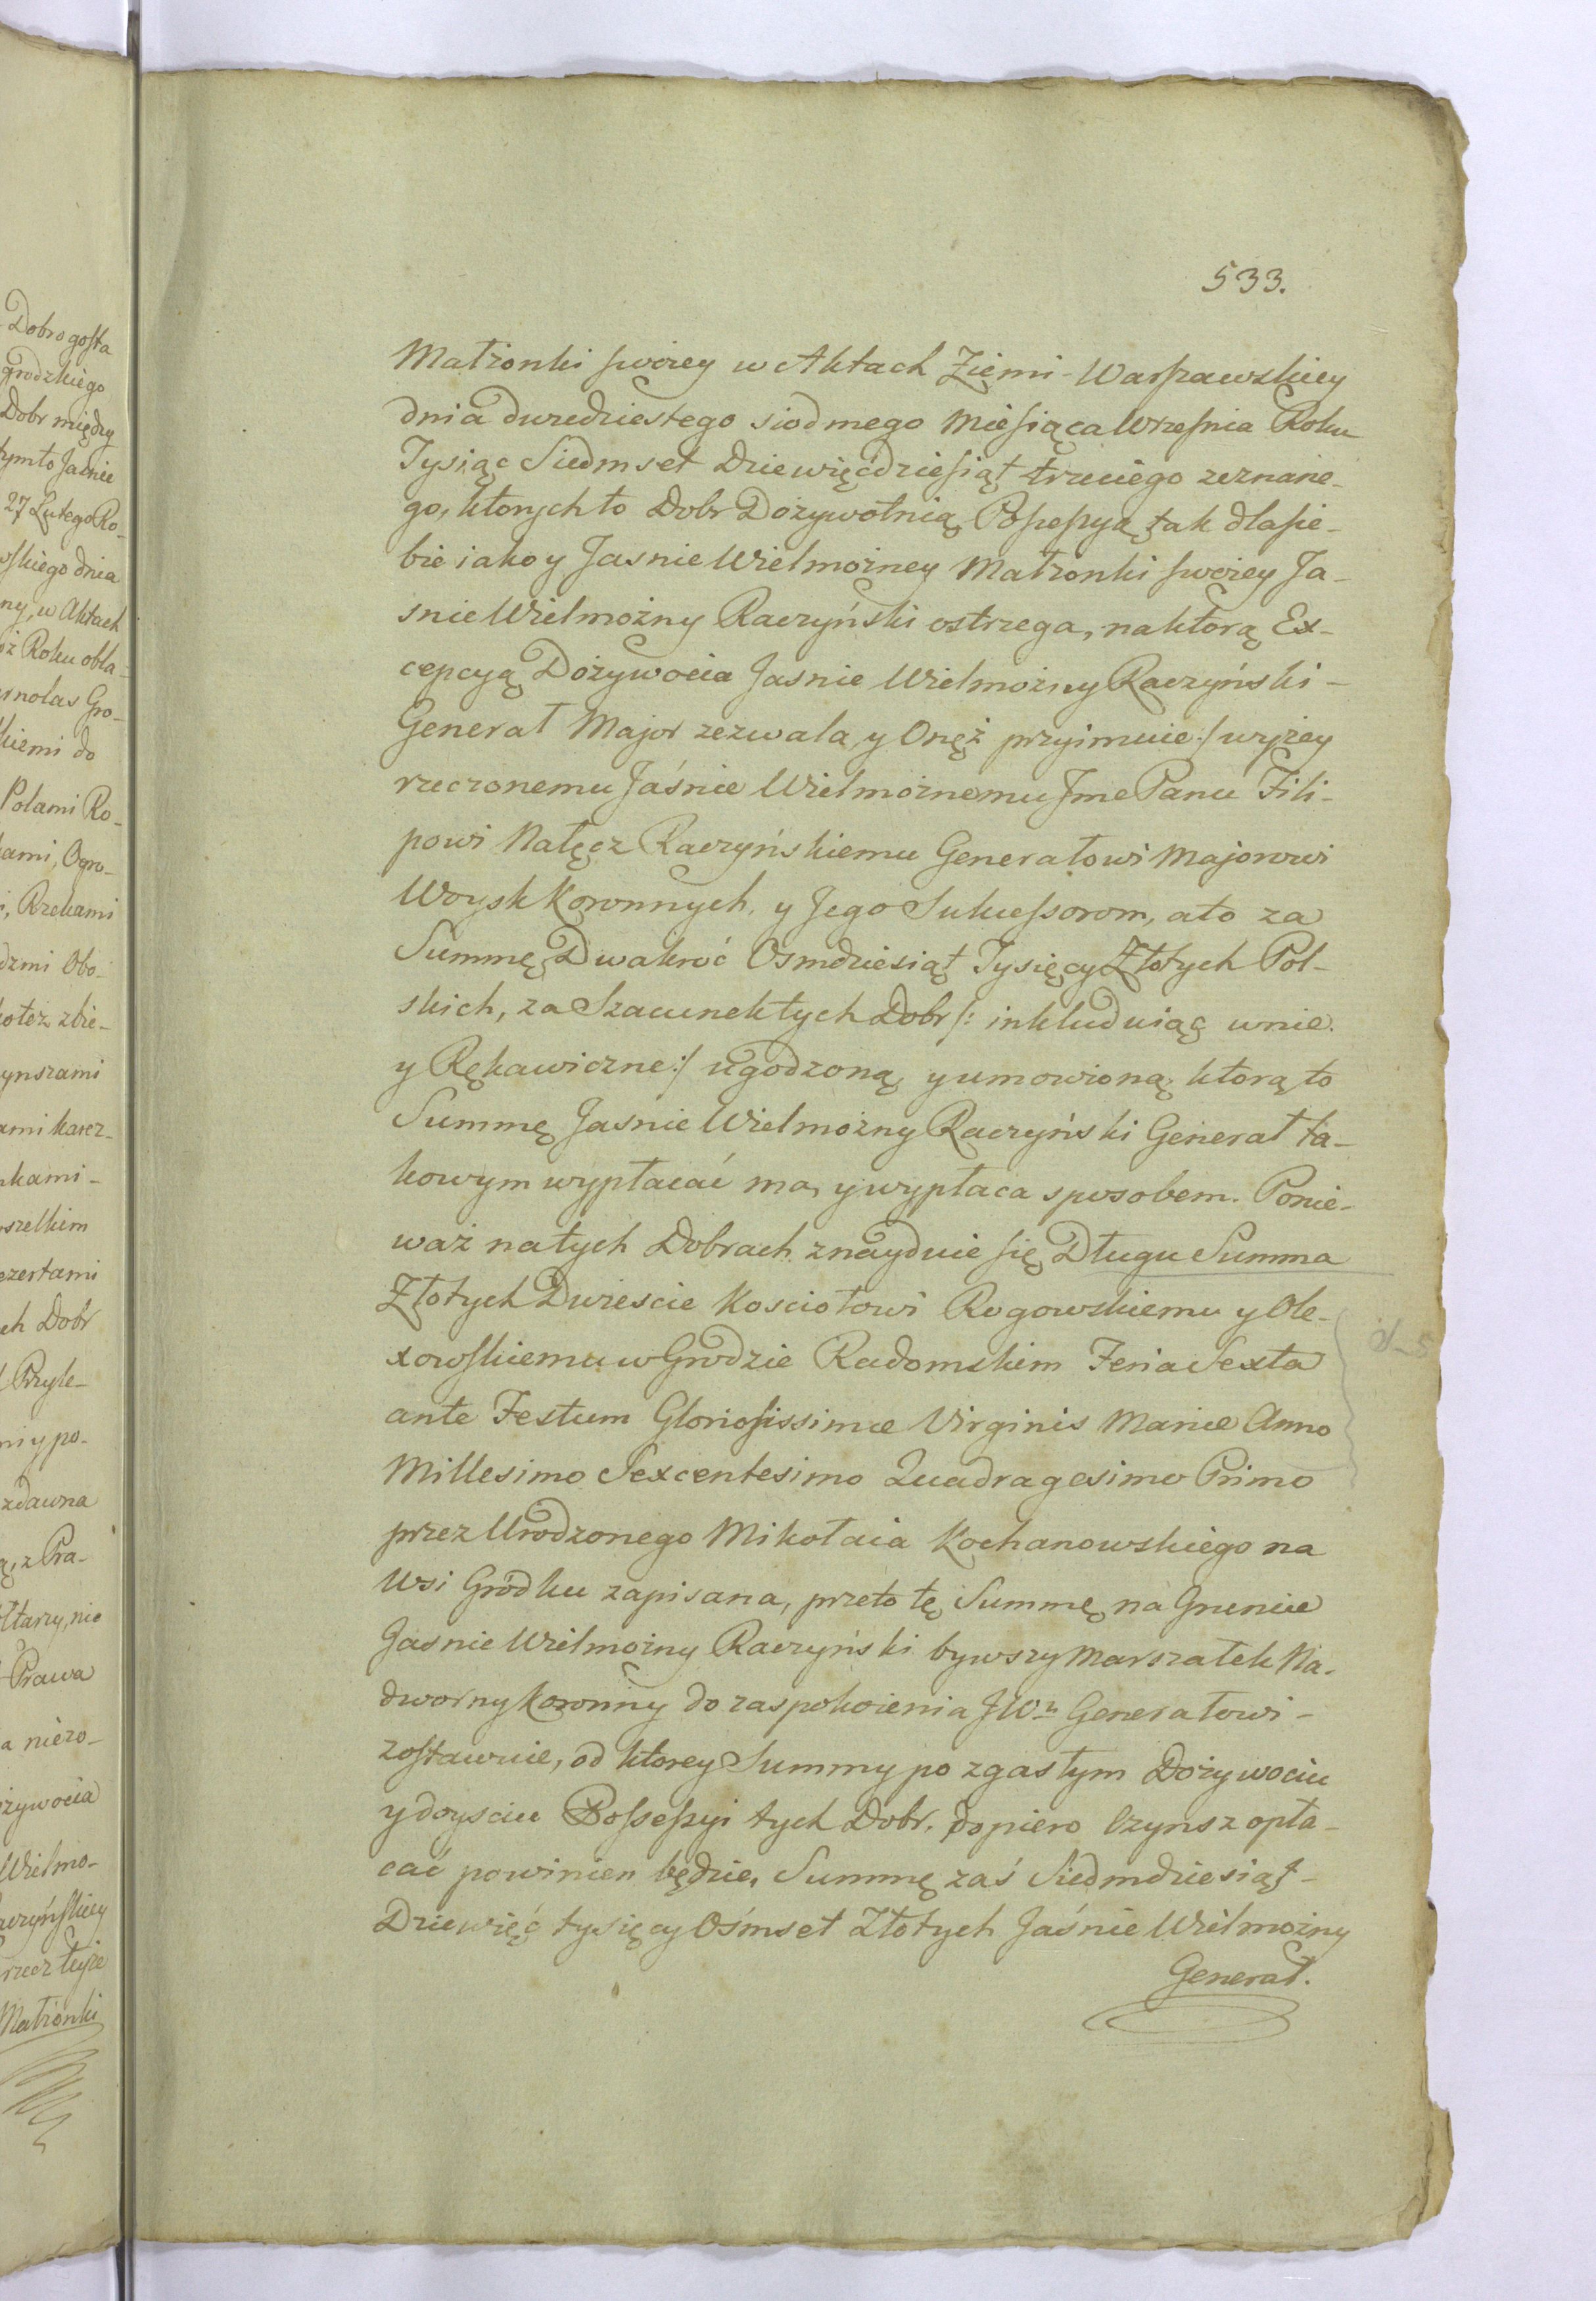 533.
Małżonki swoiey w Aktach Ziemi Warszawskiey
dnia dwudziestego siodmego Miesiąca Wrzesnia Roku
Tysiąc Siedmset Dziewięćdziesiąt trzeciego zeznane-
go, ktorych to Dobr Dożywotnią Possessyą tak dla sie-
bie iako y Jasnie Wielmożney Małżonki swoiey Ja-
snie Wielmożny Raczyński ostrzega, na ktorą Ex-
cepcyą Dożywocia Jasnie Wielmożny Raczyński -
Generał Major zezwala y Onęż przyimuie :/ wyżey
rzeczonemu Jaśnie Wielmożnemu Jme Panu Fili-
powi Nałęcz Raczyńskiemu Generałowi Majorowi
Woysk Koronnych, y Jego Sukcessorom, a to za
Summę Dwakroć Osmdziesiąt Tysięcy Złotych Pol-
skich, za Szacunek tych Dobr /: inkluduiąc w nie
y Rękawiczne :/ ugodzoną y umowioną, ktorą to
Summę Jasnie Wielmożny Raczyński Generał ta-
kowym wypłacać ma, y wypłaca sposobem. Ponie-
waż na tych Dobrach znayduie się Długu Summa
Złotych Dwiescie Kosciołowi Rogowskiemu y Ole-
xowskiemu w Grodzie Radomskim Feria Sexta
ante Festum Gloriosissimæ Virginis Mariæ Anno
Millesimo Sexcentesimo Quadragesimo Primo
przez Urodzonego Mikołaia Kochanowskiego na
Wsi Gródku zapisana, przeto tę Summę na Gruncie
Jasnie Wielmożny Raczyński bywszy Marszałek Na-
dworny Koronny do zaspokoienia JWu Generałowi -
zostawuie, od ktorey Summy po zgasłym Dożywociu
y doysciu Possessyi tych Dobr, dopiero Czynsz opła-
cać powinien będzie, Summę zaś Siedmdziesiąt -
Dziewięć tysięcy Ośmset Złotych Jaśnie Wielmożny
Generał.
Dobrogosta
grodzkiego
Dobr między
tymto Jasnie
27 Lutego Ro-
wskiego dnia
ny, w Aktach
oż Roku obla-
kiemi do
Polami Ro-
ami, Ogro-
i, Rzekami
dzmi Obo-
zynszami
ami karcz-
wszelkim
ch Dobr
Przyle-
ni y po-
zdawna
ą, z Pra-
ltarzy, nie
Prawa
a niezo-
ożywocia
Wielmo-
aczyńskiey
rzecz teyże
Małżonki